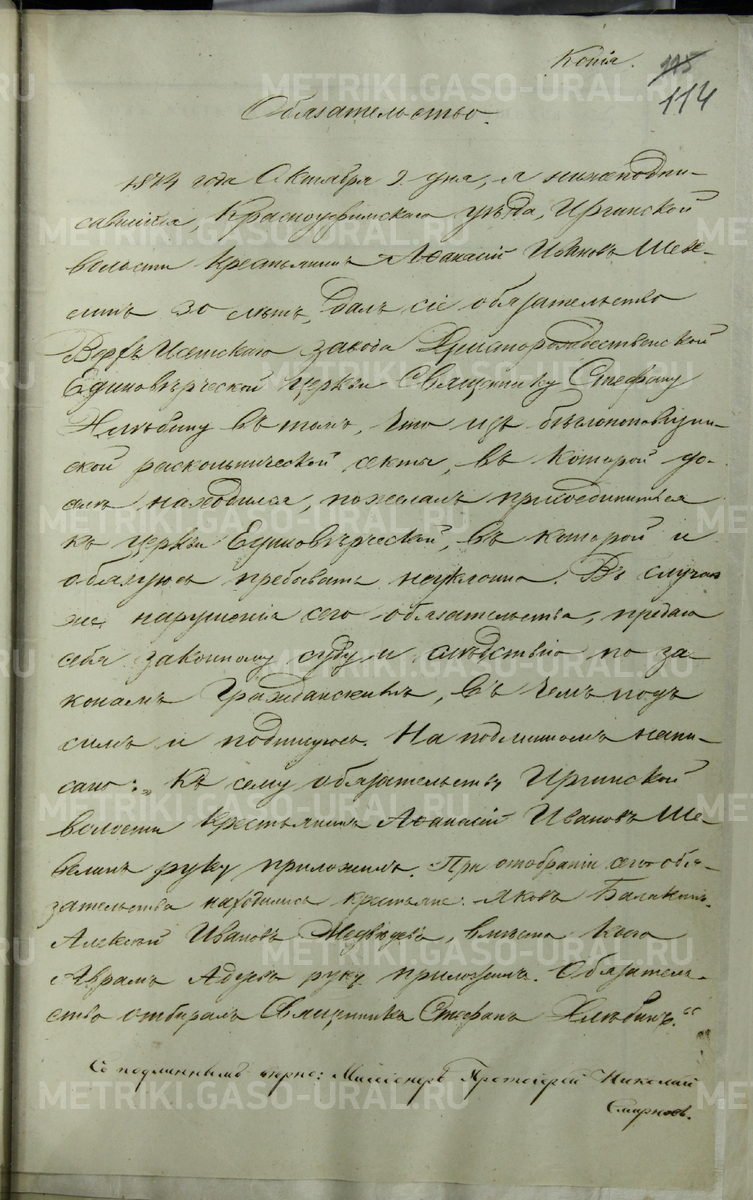 Копія.
115
114
Обязательство.
1874 года Октября 9 дня, я нижеподпи-
савшійся, Красноуфимскаго уѣзда, Иргинской
волости крестьянинъ Аѳанасій Ивановъ Шеве-
линъ 30 лѣтъ, далъ сіе обязательство
Верхъ Исетскаго завода Христорождественской
Единовѣрческой церкви Священнику Стефану
Хлѣбину въ томъ, что изъ бѣглопоповщин-
ской раскольнической секты, въ которой до-
селѣ находился, пожелалъ присоединиться
къ церкви Единовѣрческой, въ которой и
обязуюсь пребывать неуклонно. Въ случаѣ
же нарушенія сего обязательства, предаю
себя законному суду и слѣдствію по за-
конамъ Гражданскимъ, въ чемъ подъ
симъ и подпишуюсь. На подлинномъ напи-
сано: „Къ сему обязательству Иргинской
волости крестьянинъ Аѳанасій Ивановъ Ше-
велинъ руку приложилъ. При отобраніи сего обя-
зательства находились крестьяне: Яковъ Балакинъ,
Алексѣй Ивановъ Медвѣдевъ, вмѣсто коего
Аврамъ руку приложилъ. Обязатель-
ство отбиралъ Священникъ Стефанъ Хлѣбинъ."
Съ подлиннымъ вѣрно: Миссіонеръ Протоіерей Николай
Смирновъ.
METRIKI.GASO-URAL.RU